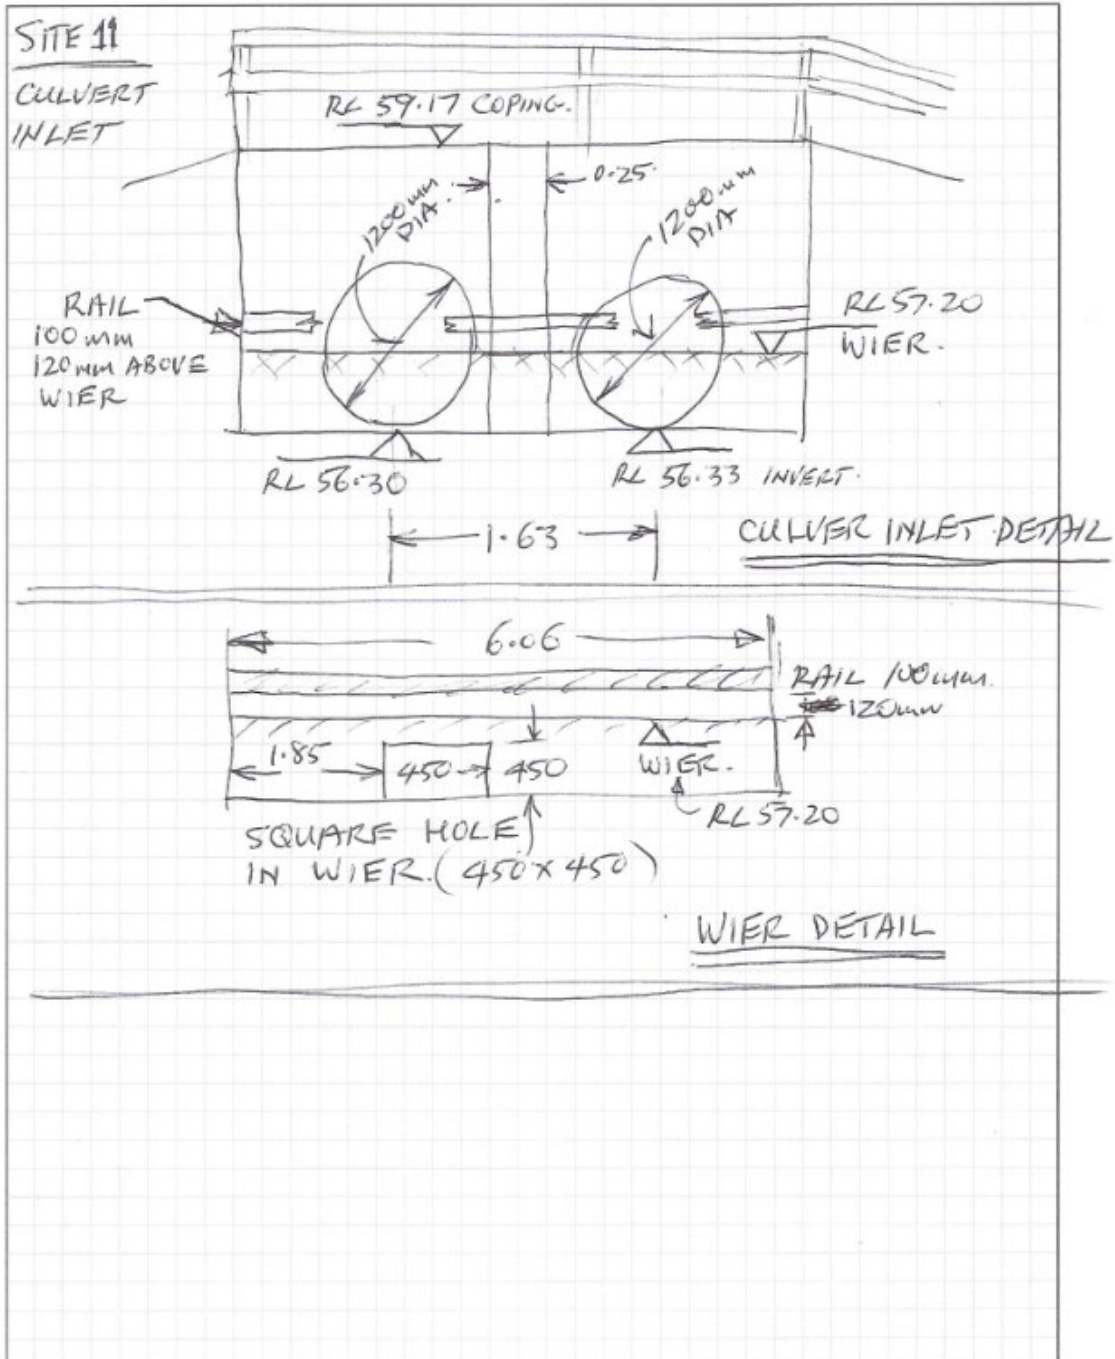 SITE 11
CULVERT
INLET
RL 59.17 COPING.
0.25
1200 mm
DIA.
1200 mm
DIA
RAIL
100 mm
120 mm ABOVE
WIER
RL 57.20
WIER.
RL 56.30
RL 56.33 INVERT.
1.63
CULVER INLET DETAIL
6.06
RAIL 100 mm.
120 mm
1.85
450
450
WIER.
RL 57.20
SQUARE HOLE
IN WIER. (450 x 450)
WIER DETAIL